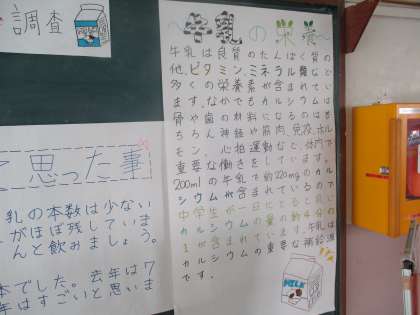 調査
て思った事
乳の本数は少ない
がほぼ残していま
んと飲みましょう。
本でした。去年は7
年はすごいと思いま
〜牛乳の栄養〜
牛乳は良質のたんぱく質の
他、ビタミン、ミネラル類など
多くの栄養素が含まれてい
ます。なかでもカルシウムは
骨や歯の材料になるのはも
ちろん、神経や筋肉、免疫、ホル
モン、心拍運動など体内で
重要な働きをしています。
200mlの牛乳で約220mgのカル
シウムが含まれているので、
中学生が一日にとると良い
カルシウムの量の約4分の
1が含まれています。牛乳は
カルシウムの重要な補給源
です。
MILK